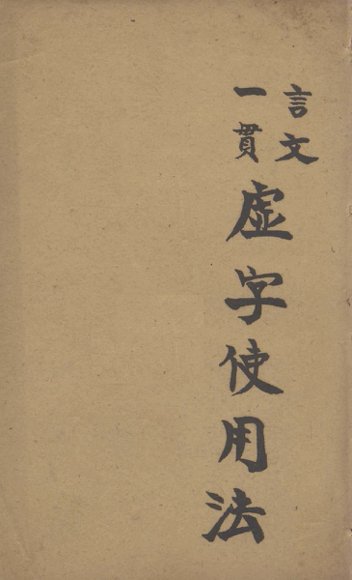 言文
一貫
虛字使用法